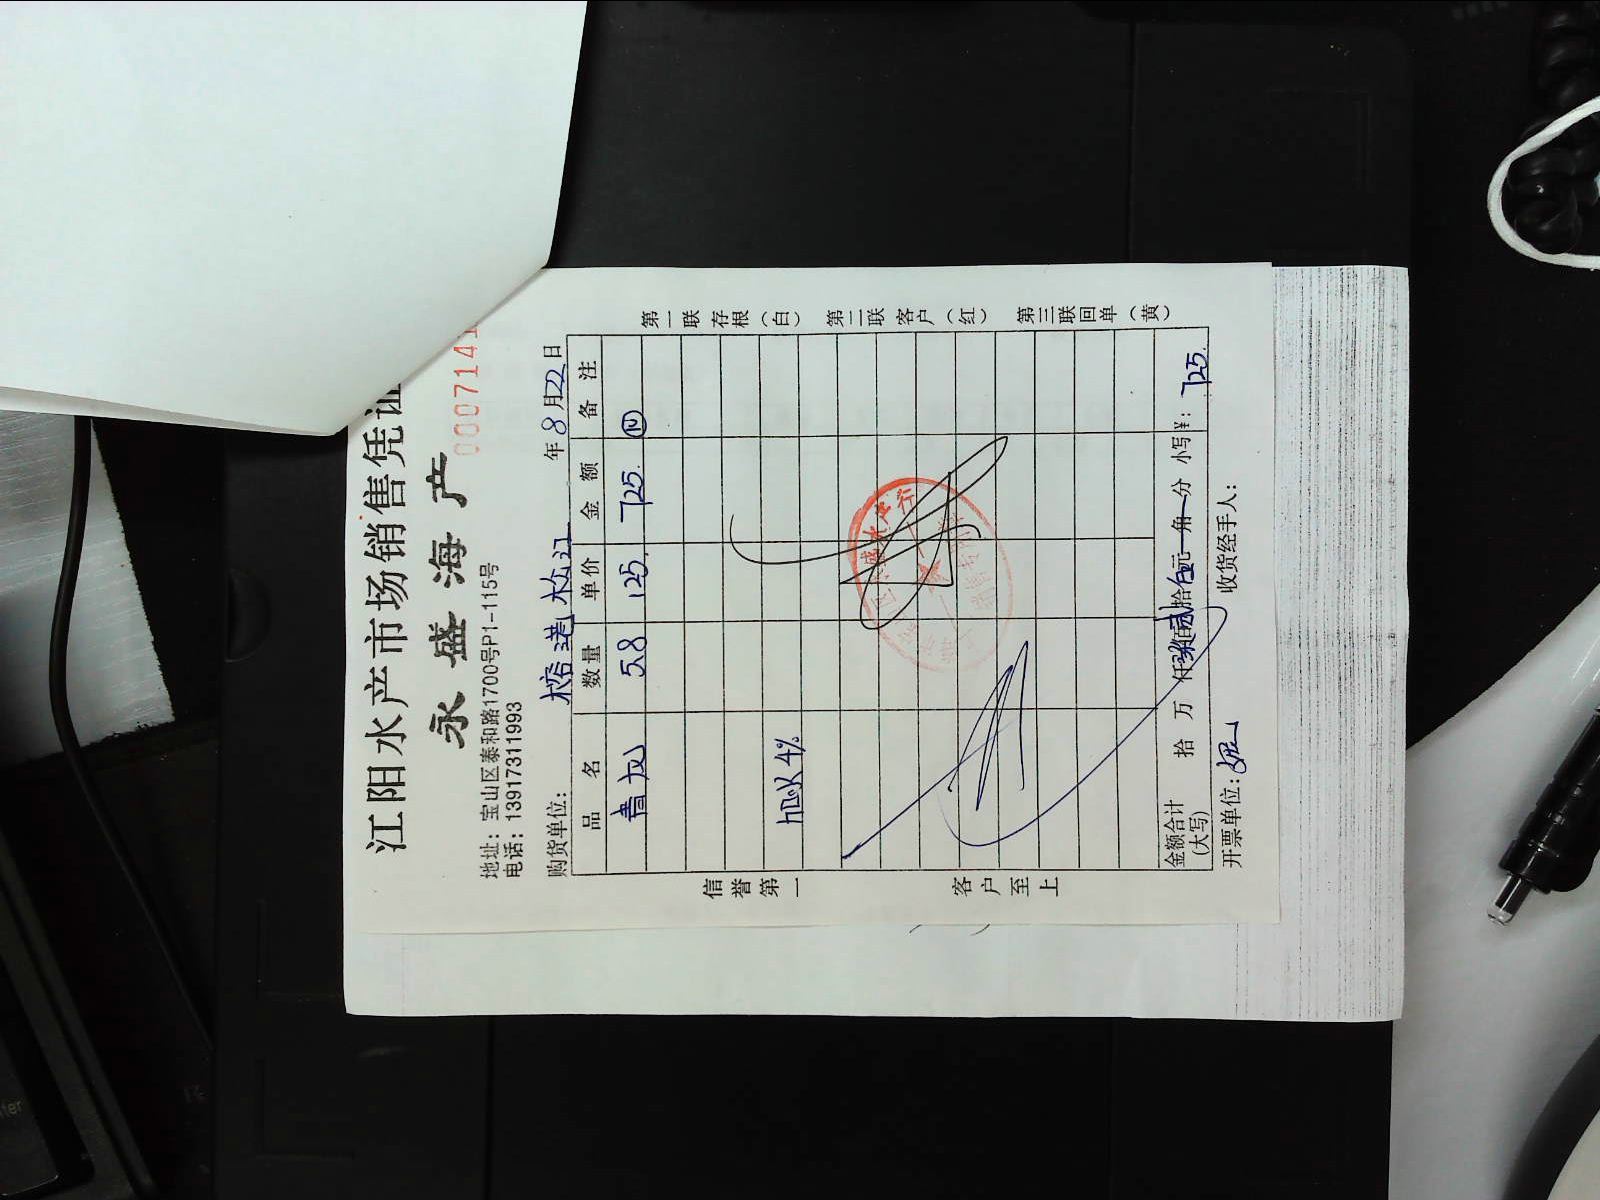 江阳水产市场销售凭证
永盛海产
0007141
地址：宝山区泰和路1700号P1-115号
电话：13917311993
购货单位：榕港松江 年8月22日
品名 数量 单价 金额 备注
青龙 5.8 125. 725.
加水4%
信誉第一 客户至上
第一联存根（白） 第二联客户（红） 第三联回单（黄）
金额合计（大写） 拾 万 仟柒佰贰拾伍元 角 分 小写¥：725.
开票单位： 收货经手人：